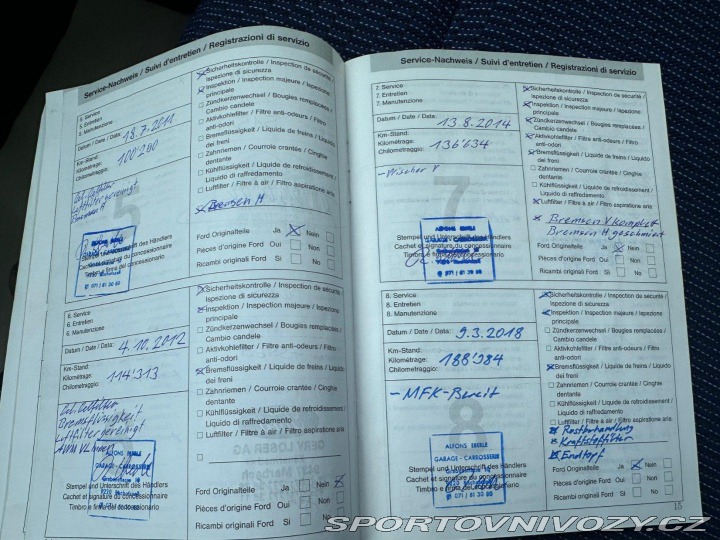 Service-Nachweis / Suivi d'entretien / Registrazioni di servizio
5. Service
5. Entretien
5. Manutenzione
Datum / Date / Data: 18.7.2011
Km-Stand:
Kilométrage:
Chilometraggio: 100'290
Sicherheitskontrolle / Inspection de sécurité /
Ispezione di sicurezza
Inspektion / Inspection majeure / Ispezione
principale
Zündkerzenwechsel / Bougies remplacées /
Cambio candele
Aktivkohlefilter / Filtre anti-odeurs / Filtro
anti-odori
Bremsflüssigkeit / Liquide de freins / Liquido
dei freni
Zahnriemen / Courroie crantée / Cinghie
dentante
Kühlflüssigkeit / Liquide de refroidissement /
Liquido di raffredamento
Luftfilter / Filtre à air / Filtro aspiratione aria
Bremsen H
Luftfilter gereinigt
5
ALFONS EBERLE
GARAGE - CARROSSERIE
Stempel und Unterschrift des Händlers
Cachet et signature du concessionnaire
Timbro e firma del concessionario
Ford Originalteile Ja Nein
Pièces d'origine Ford Oui Non
Ricambi originali Ford Si No
6. Service
6. Entretien
6. Manutenzione
Datum / Date / Data: 4.10.2012
Km-Stand:
Kilométrage:
Chilometraggio: 114'313
Bremsflüssigkeit
Luftfilter gereinigt
Sicherheitskontrolle / Inspection de sécurité /
Ispezione di sicurezza
Inspektion / Inspection majeure / Ispezione
principale
Zündkerzenwechsel / Bougies remplacées /
Cambio candele
Aktivkohlefilter / Filtre anti-odeurs / Filtro
anti-odori
Bremsflüssigkeit / Liquide de freins / Liquido
dei freni
Zahnriemen / Courroie crantée / Cinghie
dentante
Kühlflüssigkeit / Liquide de refroidissement /
Liquido di raffredamento
Luftfilter / Filtre à air / Filtro aspiratione aria
ALFONS EBERLE
GARAGE - CARROSSERIE
Stempel und Unterschrift des Händlers
Cachet et signature du concessionnaire
Timbro e firma del concessionario
Ford Originalteile Ja Nein
Pièces d'origine Ford Oui Non
Ricambi originali Ford Si No
Service-Nachweis / Suivi d'entretien / Registrazioni di servizio
7. Service
7. Entretien
7. Manutenzione
Datum / Date / Data: 13.8.2014
Km-Stand:
Kilométrage:
Chilometraggio: 136'634
- Wischer V
7
Sicherheitskontrolle / Inspection de sécurité /
Ispezione di sicurezza
Inspektion / Inspection majeure / Ispezione
principale
Zündkerzenwechsel / Bougies remplacées /
Cambio candele
Aktivkohlefilter / Filtre anti-odeurs / Filtro
anti-odori
Bremsflüssigkeit / Liquide de freins / Liquido
dei freni
Zahnriemen / Courroie crantée / Cinghie
dentante
Kühlflüssigkeit / Liquide de refroidissement /
Liquido di raffredamento
Luftfilter / Filtre à air / Filtro aspiratione aria
Bremsen V komplett
Bremsen H geschmiert
ALFONS EBERLE
GARAGE - CARROSSERIE
Stempel und Unterschrift des Händlers
Cachet et signature du concessionnaire
Timbro e firma del concessionario
Ford Originalteile Ja Nein
Pièces d'origine Ford Oui Non
Ricambi originali Ford Si No
8. Service
8. Entretien
8. Manutenzione
Datum / Date / Data: 9.3.2018
Km-Stand:
Kilométrage:
Chilometraggio: 188'984
- MFK-Bereit
8
Sicherheitskontrolle / Inspection de sécurité /
Ispezione di sicurezza
Inspektion / Inspection majeure / Ispezione
principale
Zündkerzenwechsel / Bougies remplacées /
Cambio candele
Aktivkohlefilter / Filtre anti-odeurs / Filtro
anti-odori
Bremsflüssigkeit / Liquide de freins / Liquido
dei freni
Zahnriemen / Courroie crantée / Cinghie
dentante
Kühlflüssigkeit / Liquide de refroidissement /
Liquido di raffredamento
Luftfilter / Filtre à air / Filtro aspiratione aria
Rostbehandlung
Kraftstofffilter
Endtopf
ALFONS EBERLE
GARAGE - CARROSSERIE
Stempel und Unterschrift des Händlers
Cachet et signature du concessionnaire
Timbro e firma del concessionario
Ford Originalteile Ja Nein
Pièces d'origine Ford Oui Non
Ricambi originali Ford Si No
15
SPORTOVNIVOZY.CZ